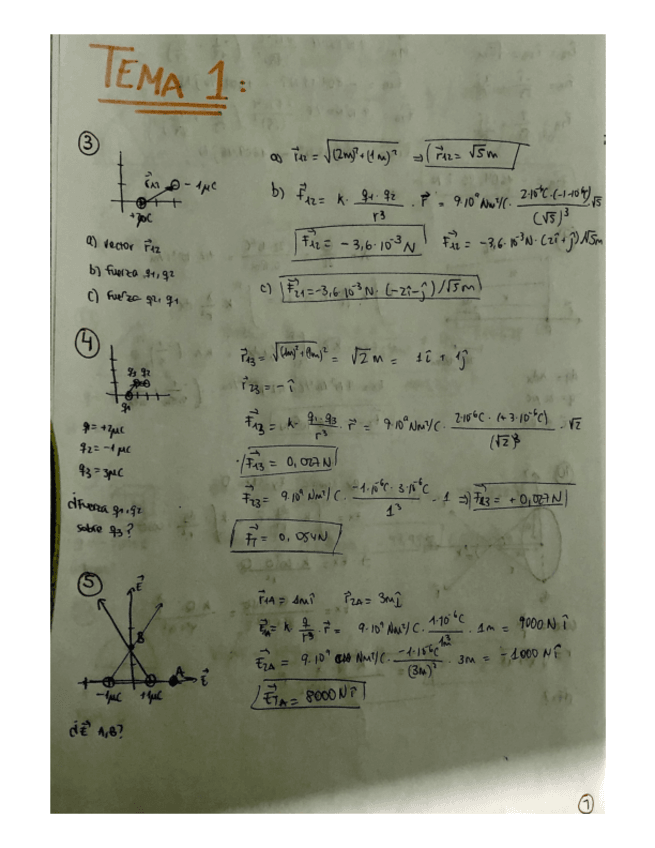 TEMA 1:
③
r⃗12
-1μC
+2μC
a) vector r⃗12
b) fuerza q1, q2
c) fuerza q2, q1
a) r⃗12 = √(2m)²+(1m)² ⇒ r⃗12 = √5 m
b) F⃗12 = k · q1·q2/r³ · r⃗ = 9·10⁹ Nm²/C · 2·10⁻⁶C·(-1·10⁻⁶)/(√5)³ · √5
F⃗12 = -3,6·10⁻³ N F⃗12 = -3,6·10⁻³ N·(2î+ĵ)/√5m
c) F⃗21 = -3,6·10⁻³ N·(-2î-ĵ)/√5 m
④
q3 q2
q1
q1 = +2μC
q2 = -1μC
q3 = 3μC
¿Fuerza q1, q2
sobre q3?
r⃗13 = √(1m)²+(1m)² = √2 m = 1î + 1ĵ
r⃗23 = -î
F⃗13 = k· q1·q3/r³ · r⃗ = 9·10⁹ Nm²/C · 2·10⁻⁶C·(+3·10⁻⁶C)/(√2)³ · √2
F⃗13 = 0,027N
F⃗23 = 9·10⁹ Nm²/C · -1·10⁻⁶C·3·10⁻⁶C/1³ · 1 ⇒ F⃗23 = +0,027N
F⃗T = 0,054N
⑤
E⃗
B
A
E⃗
-1μC +1μC
¿E⃗ A,B?
r⃗1A = 1mî r⃗2A = 3mî
E⃗A = k q/r³ · r⃗ = 9·10⁹ Nm²/C · 1·10⁻⁶C/1m³ · 1m = 9000 N î
E⃗2A = 9·10⁹ Nm²/C · -1·10⁻⁶C/(3m)³ · 3m = -1000 N î
E⃗TA = 8000 N î
①